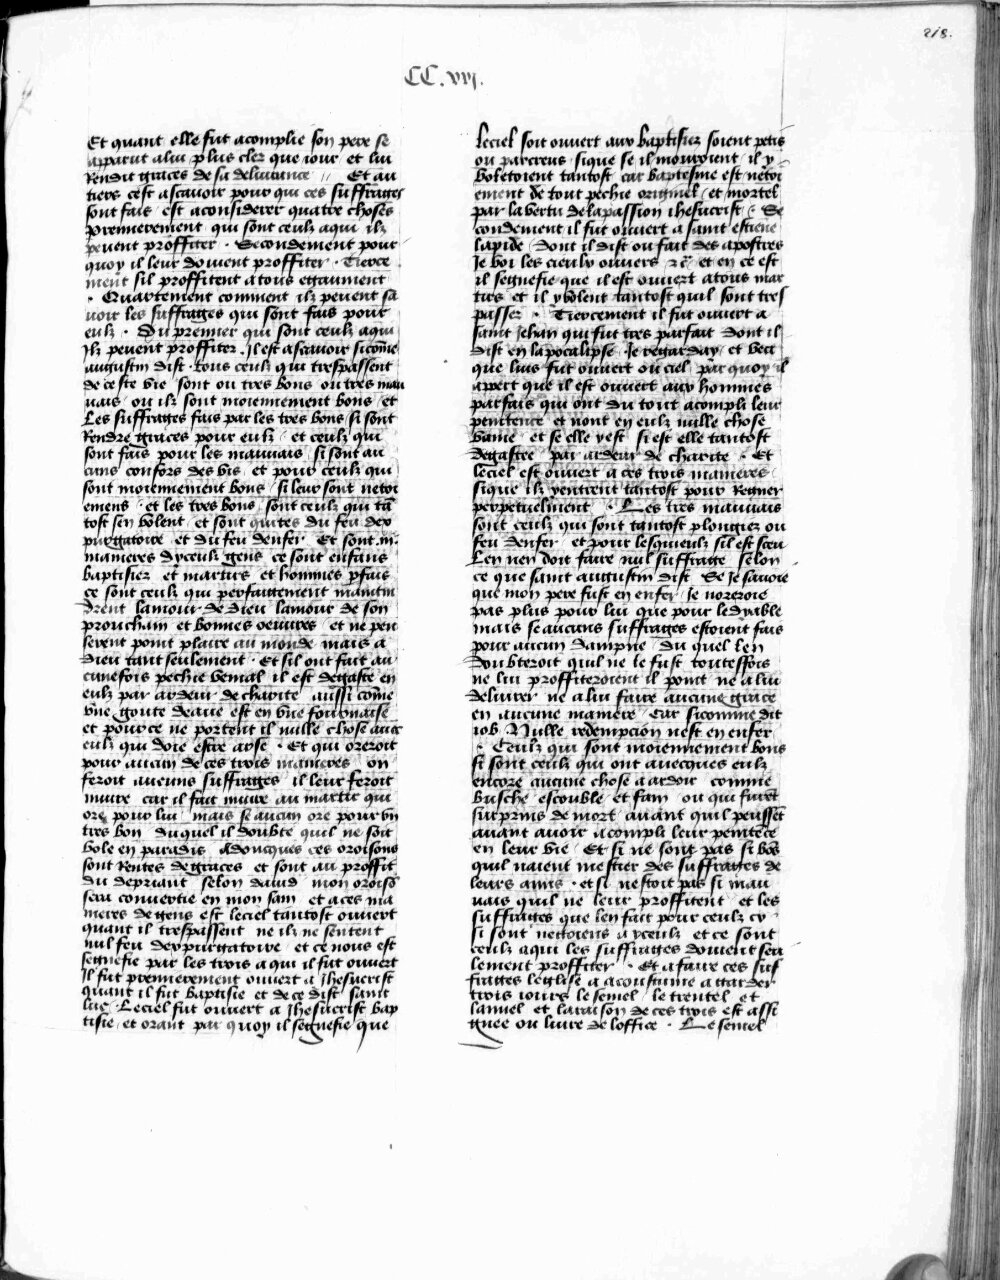 218.
CC.xvj.
Et quant elle fut acomplie son pere se
apparut alui plus cler que iour et lui
Rendit graces de sa deliurance // Et au
tiers cest ascauoir pour qui ces suffrages
sont fais est aconsiderer quatre choses
premierement qui sont ceulz aqui ilz
peuent proffiter . Secondement pour
quoy il leur doiuent proffiter . Tierce
ment sil proffitent atous egaument
. Quartement comment ilz peuent sa
uoir les suffrages qui sont fais pour
eulz . Du premier qui sont ceulz aqui
Ilz peuent proffiter . Il est ascauoir sicome
augustin dist . tous ceulz qui trespassent
de ceste vie sont ou tres bons ou tres mau
uais ou ilz sont moiennement bons et
Les suffrages fais par les tres bons si sont
Rendre graces pour eulz et ceulz qui
sont fais pour les mauuais si sont au
cuns confors des vis et pour ceulz qui
sont moiennement bons si leur sont netoi
emens et les tres bons sont ceulz qui ta
tost sen volent et sont quites du feu dex
purgatoire et du feu denfer Et sont .iij.
manieres dyceulz gens ce sont enfans
baptisiez et martirs et hommes pfais
ce sont ceulz qui perfaitement maintin
drent lamour de dieu lamour de son
prouchain et bonnes oeuures et ne pen
serent point plaire au monde mais a
dieu tant seulement . Et sil ont fait au
cunefois pechie venial il est degaste en
eulz par ardeur de charite aussi come
vne goute deaue est en vne fournaise
et pource ne portent il nulle chose auec
eulz qui doie estre arse . Et qui oreroit
pour aucun de ces trois manieres ou
feroit aucuns suffrages il leur feroit
iniure car il fait iniure au martir qui
ore pour lui mais se aucun ore pour vn
tres bon duquel il doubte quil ne soit
vole en paradis adoncques ces oroisons
sont Rentes de graces et sont au proffit
du depriant selon dauid mon oroiso
sera conuertie en mon sain et aces ma
nieres de gens est leciel tantost ouuert
quant il trespassent ne ilz ne sentent
nul feu dexpurgatoire et ce nous est
segnefie par les trois a qui il fut ouuert
Il fut premierement ouuert a Jhesucrist
quant il fut baptisie et de ce dist saint
luc . Leciel fut ouuert a Jhesucrist bap
tisie et orant par quoy il segnefie que
leciel soit ouuert aux baptisiez soient petis
ou parcreus sique se il mouroient il y
voleroient tantost car baptesme est netoi
ement de tout pechie originel et mortel
par la vertu de lapassion ihesucrist . Se
condement il fut ouuert a saint estiene
lapide dont il dist ou fait des apostres
Je voi les cieulx ouuers et en ce est
il segnefie que il est ouuert atous mar
tirs et il y volent tantost quil sont tres
passez . Tiercement il fut ouuert a
saint Jehan qui fut tres parfait dont il
dist en lapocalipse Je regarday et veci
que luis fut ouuert ou ciel par quoy il
apert que il est ouuert aux hommes
parfais qui ont du tout acompli leur
penitence et nont en eulz nulle chose
vaine et se elle y est si est elle tantost
degastee par ardeur de charite . Et
leciel est ouuert a ces trois manieres
sique ilz y entrent tantost pour Regner
perpetuelment . Les tres mauuais
sont ceulz qui sont tantost plongiez ou
feu denfer et pour lesquieulz sil est sceu
Len nen doit faire nul suffrage selon
ce que saint augustin dist Se Je sauoie
que mon pere fust en enfer Je noreroie
pas plus pour lui que pour ledyable
mais se aucuns suffrages estoient fais
pour aucun dampne du quel len
doubteroit quil ne le fust toutesfois
ne lui proffiteroient il point ne a lui
deliurer ne a lui faire aucune grace
en aucune maniere Car sicomme dit
iob Nulle redempcion nest en enfer
. Ceulz qui sont moiennement bons
si sont ceulz qui ont auecques eulz
encore aucune chose a ardoir comme
busche escouble et fain ou qui furet
surprins de mort auant quil peusset
auant auoir acompli leur penitece
en leur vie Et si ne sont pas si bos
quil naient mestier des suffrages de
leurs amis . et si ne sont pas si mau
uais quil ne leur proffitent et les
suffrages que len fait pour ceulz cy
si sont nettoiens a yceulz et ce sont
ceulz aqui les suffrages doiuent seu
lement proffiter . Et a faire ces suf
frages leglise a acoustume a garder
trois iours le semel le trentel et
lannel et laraison de ces trois est assi
gnee ou liure de loffice . Le semel